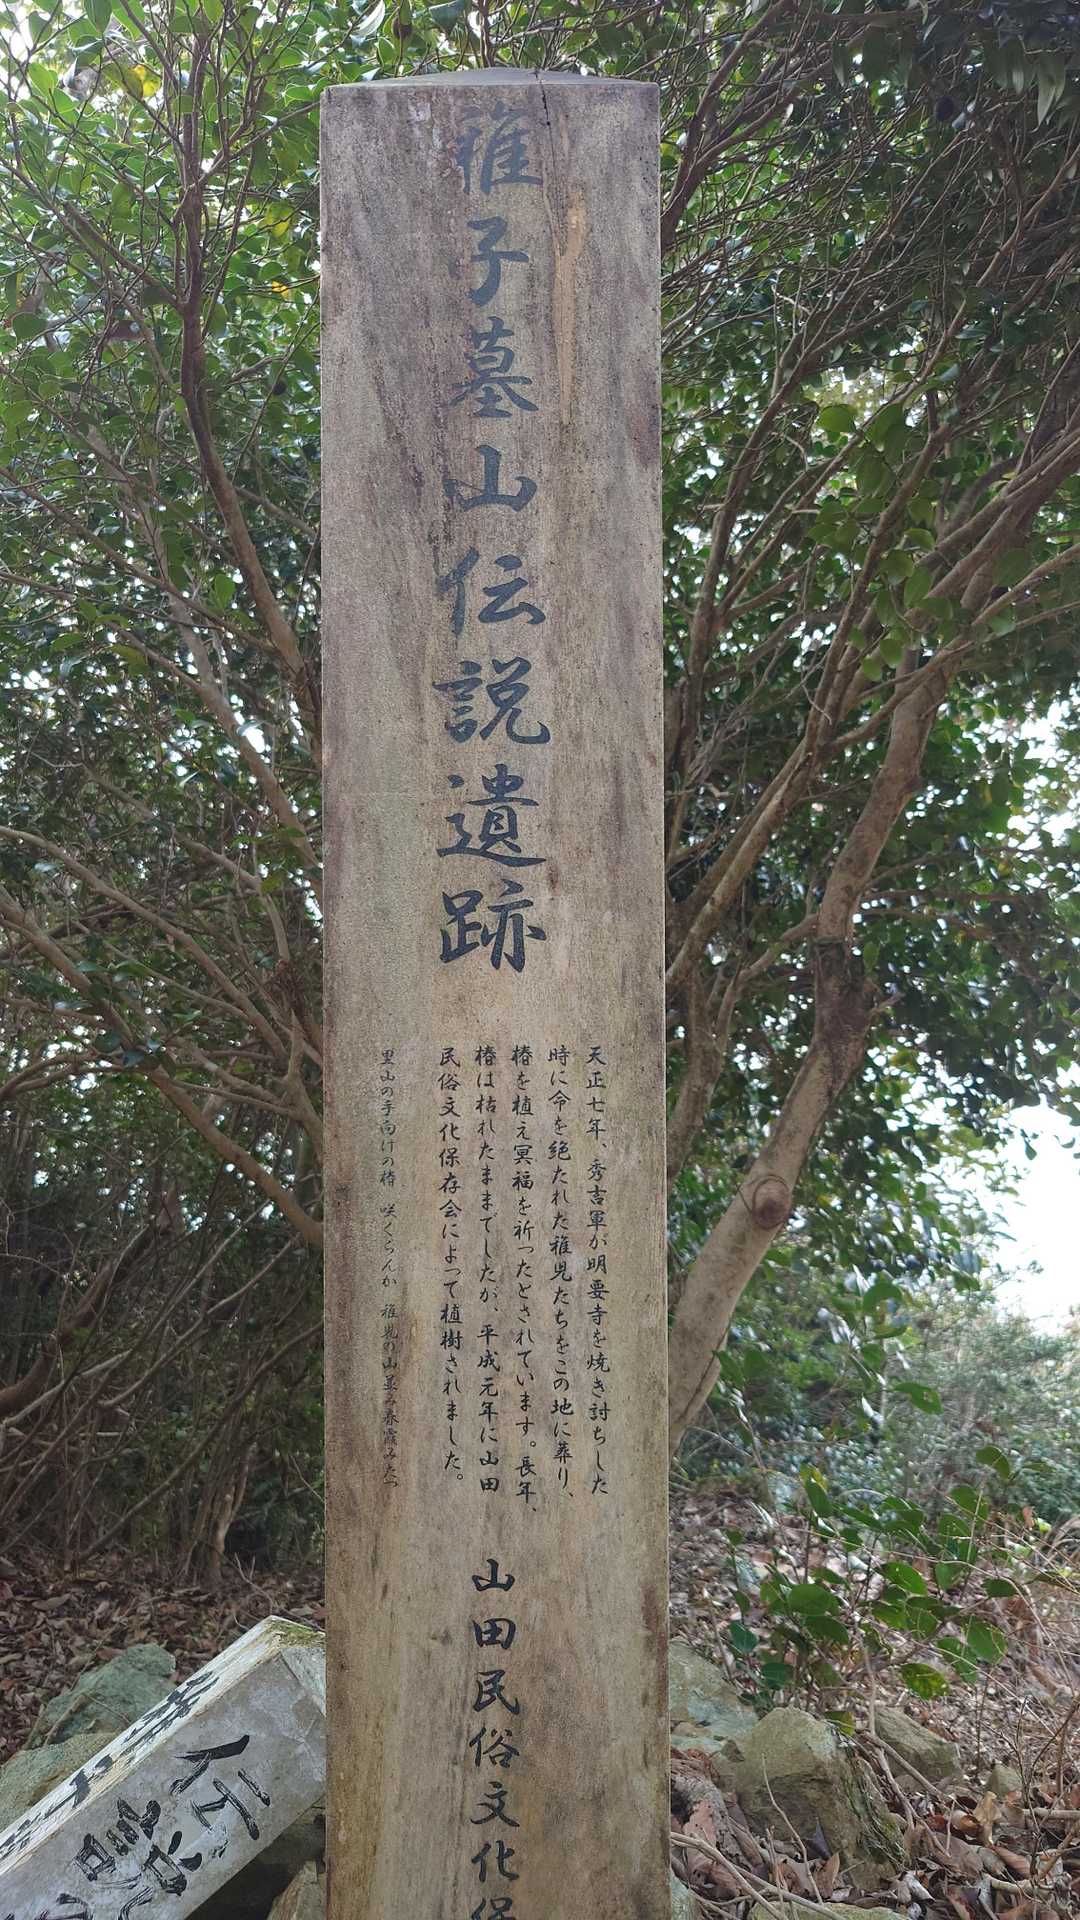 稚子墓山伝説遺跡
天正七年、秀吉軍が明要寺を焼き討ちした
時に命を絶たれた稚児たちをこの地に葬り、
椿を植え冥福を祈ったとされています。長年、
椿は枯れたままでしたが、平成元年に山田
民俗文化保存会によって植樹されました。
里山の手向けの椿 咲くらんか 稚児の山並み春霞みたつ
山田民俗文化保
伝